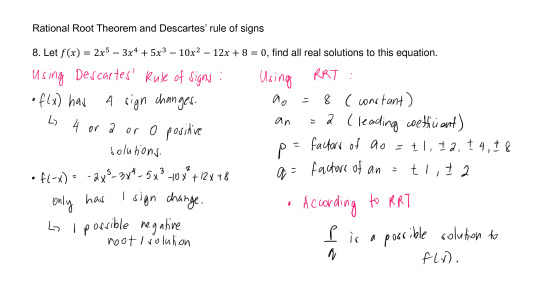 Rational Root Theorem and Descartes' rule of signs
8. Let f(x) = 2x⁵ − 3x⁴ + 5x³ − 10x² − 12x + 8 = 0, find all real solutions to this equation.
Using Descartes' Rule of Signs :
• f(x) has 4 sign changes.
↳ 4 or 2 or 0 positive
solutions.
• f(-x) = -2x⁵-3x⁴-5x³-10x²+12x+8
only has 1 sign change.
↳ 1 possible negative
root / solution
Using RRT :
a₀ = 8 (constant)
an = 2 (leading coefficient)
p = factors of a₀ = ±1, ±2, ±4, ±8
q = factors of an = ±1, ±2
• According to RRT
p/q is a possible solution to
f(x).